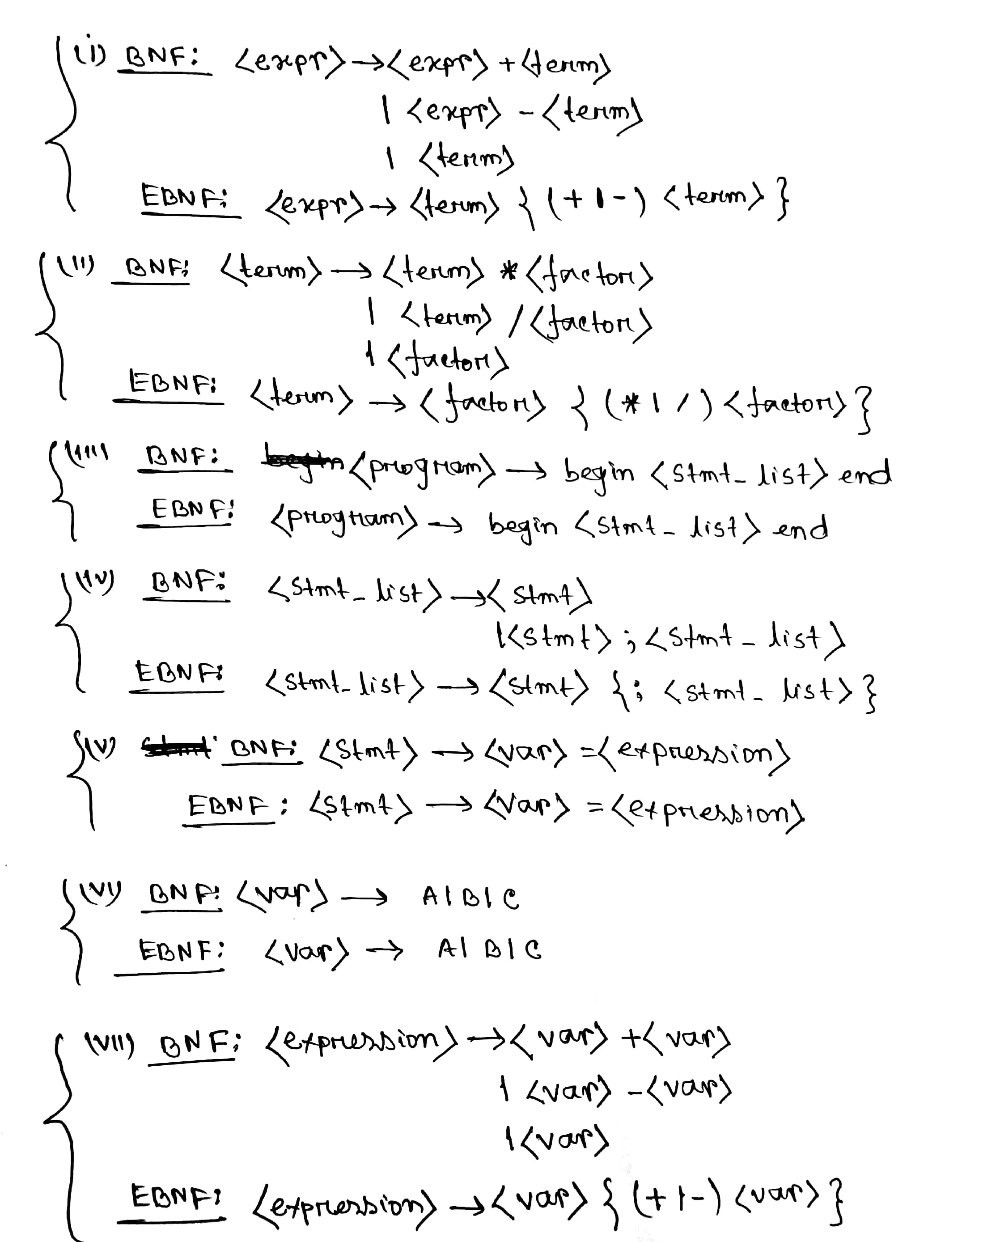 (i) BNF: <expr> → <expr> + <term>
| <expr> - <term>
| <term>
EBNF: <expr> → <term> { (+ | -) <term> }
(ii) BNF: <term> → <term> * <factor>
| <term> / <factor>
| <factor>
EBNF: <term> → <factor> { (* | /) <factor> }
(iii) BNF: begin <program> → begin <stmt_list> end
EBNF: <program> → begin <stmt_list> end
(iv) BNF: <stmt_list> → <stmt>
| <stmt> ; <stmt_list>
EBNF: <stmt_list> → <stmt> { ; <stmt_list> }
(v) stmt BNF: <stmt> → <var> = <expression>
EBNF : <stmt> → <var> = <expression>
(vi) BNF: <var> → A | B | C
EBNF: <var> → A | B | C
(vii) BNF: <expression> → <var> + <var>
| <var> - <var>
| <var>
EBNF: <expression> → <var> { (+ | -) <var> }